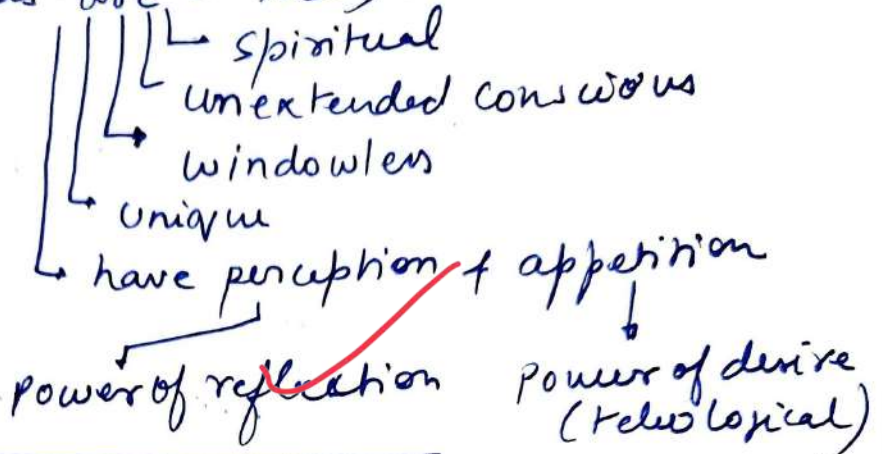 spiritual
unextended conscious
windowless
unique
have perception & appetition
power of reflection power of desire
(teleological)